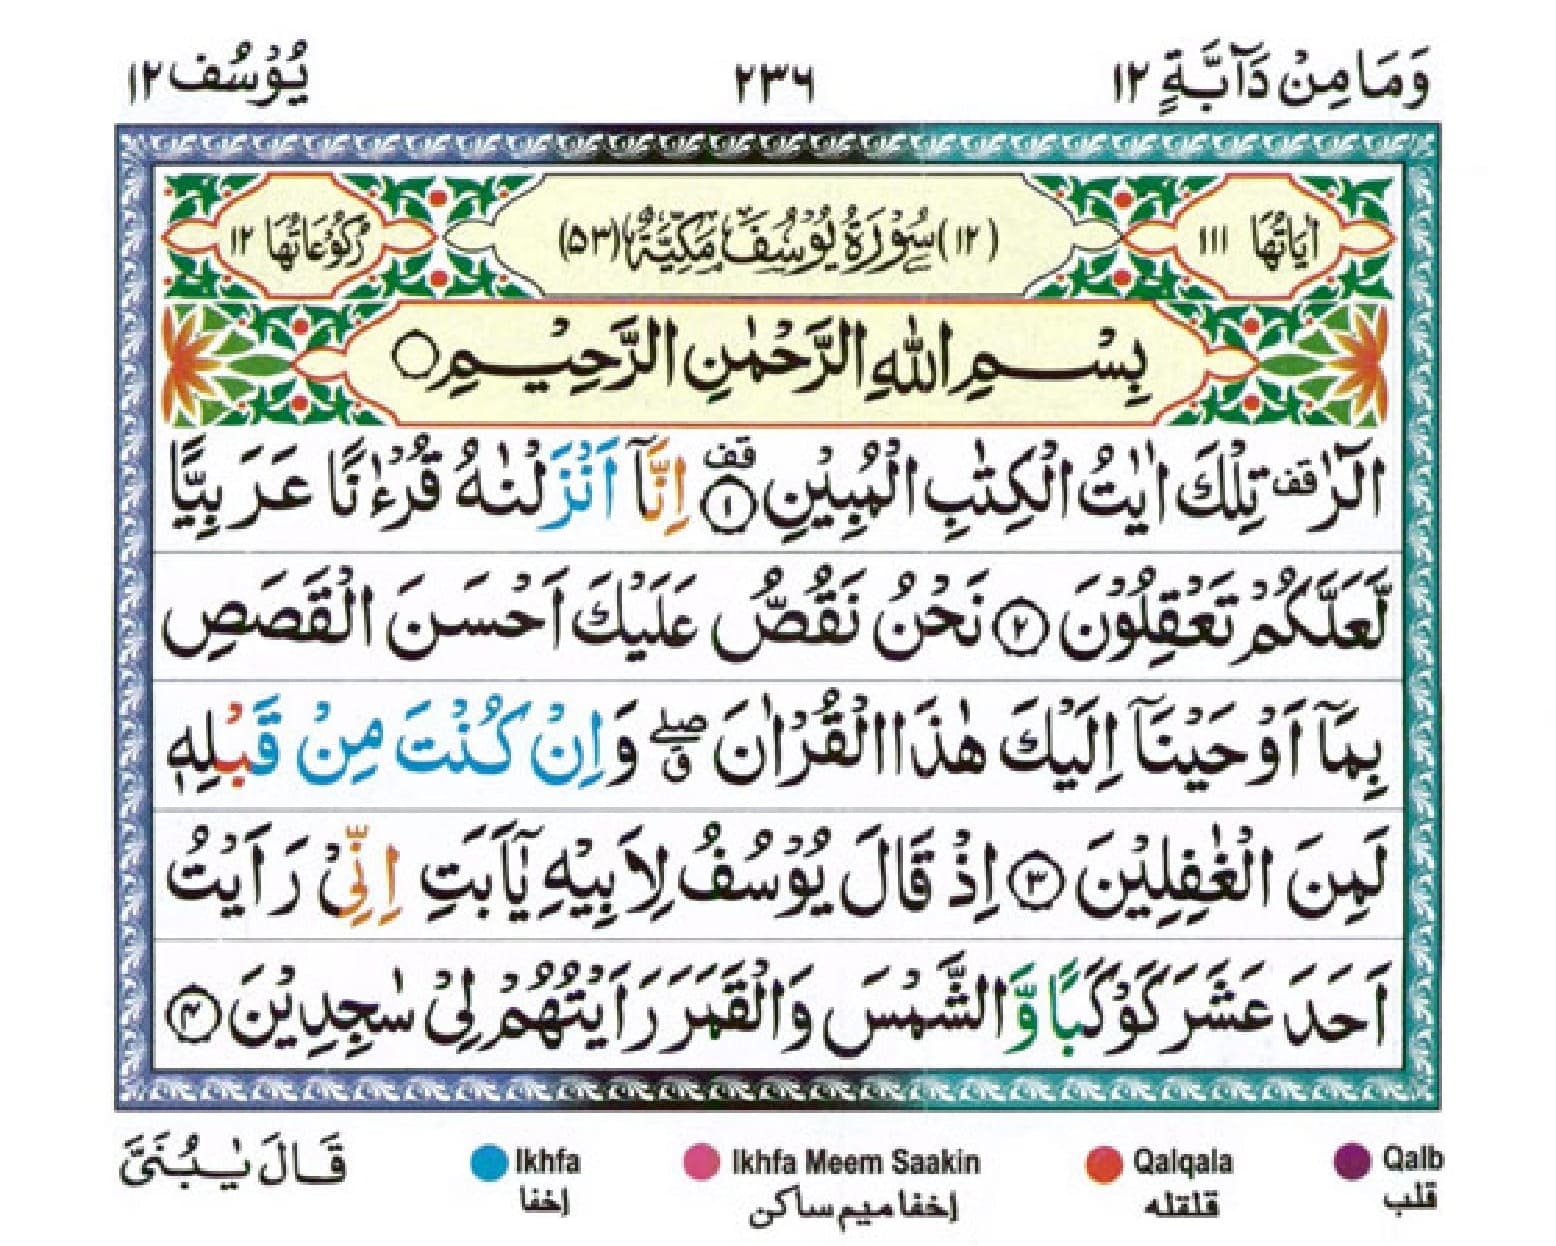 وَمَا مِنْ دَآبَّةٍ ١٢ ٢٣٦ يُوْسُف ١٢
اٰيَاتُهَا ١١١ (١٢) سُوْرَةُ يُوْسُفَ مَكِّيَّةٌ (٥٣) رُكُوْعَاتُهَا ١٢
بِسْمِ اللّٰهِ الرَّحْمٰنِ الرَّحِيْمِ
الٓرٰ قف تِلْكَ اٰيٰتُ الْكِتٰبِ الْمُبِيْنِ ١ قف اِنَّآ اَنْزَلْنٰهُ قُرْءٰنًا عَرَبِيًّا
لَّعَلَّكُمْ تَعْقِلُوْنَ ٢ نَحْنُ نَقُصُّ عَلَيْكَ اَحْسَنَ الْقَصَصِ
بِمَآ اَوْحَيْنَآ اِلَيْكَ هٰذَا الْقُرْاٰنَ ۖق وَاِنْ كُنْتَ مِنْ قَبْلِهٖ
لَمِنَ الْغٰفِلِيْنَ ٣ اِذْ قَالَ يُوْسُفُ لِاَبِيْهِ يٰٓاَبَتِ اِنِّىْ رَاَيْتُ
اَحَدَ عَشَرَ كَوْكَبًا وَّالشَّمْسَ وَالْقَمَرَ رَاَيْتُهُمْ لِىْ سٰجِدِيْنَ ٤
قَالَ يٰبُنَىَّ Ikhfa Ikhfa Meem Saakin Qalqala Qalb
إخفا إخفا ميم ساكن قلقله قلب